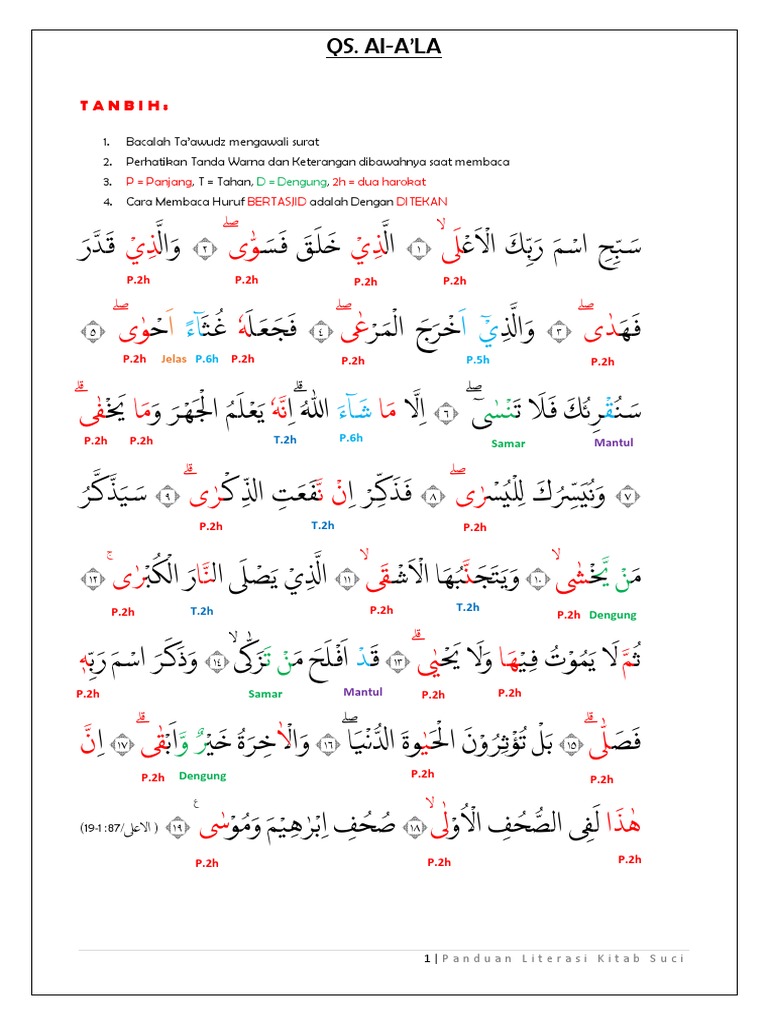 QS. Al-A'LA
TANBIH:
1. Bacalah Ta'awudz mengawali surat
2. Perhatikan Tanda Warna dan Keterangan dibawahnya saat membaca
3. P = Panjang, T = Tahan, D = Dengung, 2h = dua harokat
4. Cara Membaca Huruf BERTASJID adalah Dengan DITEKAN
سَبِّحِ اسْمَ رَبِّكَ الْاَعْلَىۙ ۝١ الَّذِيْ خَلَقَ فَسَوّٰىۖ ۝٢ وَالَّذِيْ قَدَّرَ
P.2h P.2h P.2h P.2h
فَهَدٰىۖ ۝٣ وَالَّذِيْٓ اَخْرَجَ الْمَرْعٰىۖ ۝٤ فَجَعَلَهٗ غُثَاۤءً اَحْوٰىۖ ۝٥
P.2h Jelas P.6h P.2h P.2h P.5h P.2h
سَنُقْرِئُكَ فَلَا تَنْسٰىٓۖ ۝٦ اِلَّا مَا شَاۤءَ اللّٰهُۗ اِنَّهٗ يَعْلَمُ الْجَهْرَ وَمَا يَخْفٰىۗ
P.2h P.2h T.2h P.6h Samar Mantul
۝٧ وَنُيَسِّرُكَ لِلْيُسْرٰىۖ ۝٨ فَذَكِّرْ اِنْ نَّفَعَتِ الذِّكْرٰىۗ ۝٩ سَيَذَّكَّرُ
P.2h T.2h P.2h
مَنْ يَّخْشٰىۙ ۝١٠ وَيَتَجَنَّبُهَا الْاَشْقَىۙ ۝١١ الَّذِيْ يَصْلَى النَّارَ الْكُبْرٰىۚ ۝١٢
P.2h T.2h P.2h T.2h P.2h Dengung
ثُمَّ لَا يَمُوْتُ فِيْهَا وَلَا يَحْيٰىۗ ۝١٣ قَدْ اَفْلَحَ مَنْ تَزَكّٰىۙ ۝١٤ وَذَكَرَ اسْمَ رَبِّهٖ
P.2h Samar Mantul P.2h P.2h
فَصَلّٰىۗ ۝١٥ بَلْ تُؤْثِرُوْنَ الْحَيٰوةَ الدُّنْيَاۖ ۝١٦ وَالْاٰخِرَةُ خَيْرٌ وَّاَبْقٰىۗ ۝١٧ اِنَّ
P.2h Dengung P.2h P.2h
هٰذَا لَفِى الصُّحُفِ الْاُوْلٰىۙ ۝١٨ صُحُفِ اِبْرٰهِيْمَ وَمُوْسٰى ࣖ ۝١٩ ( الاعلى/87: 1-19)
P.2h P.2h P.2h
1 | Panduan Literasi Kitab Suci